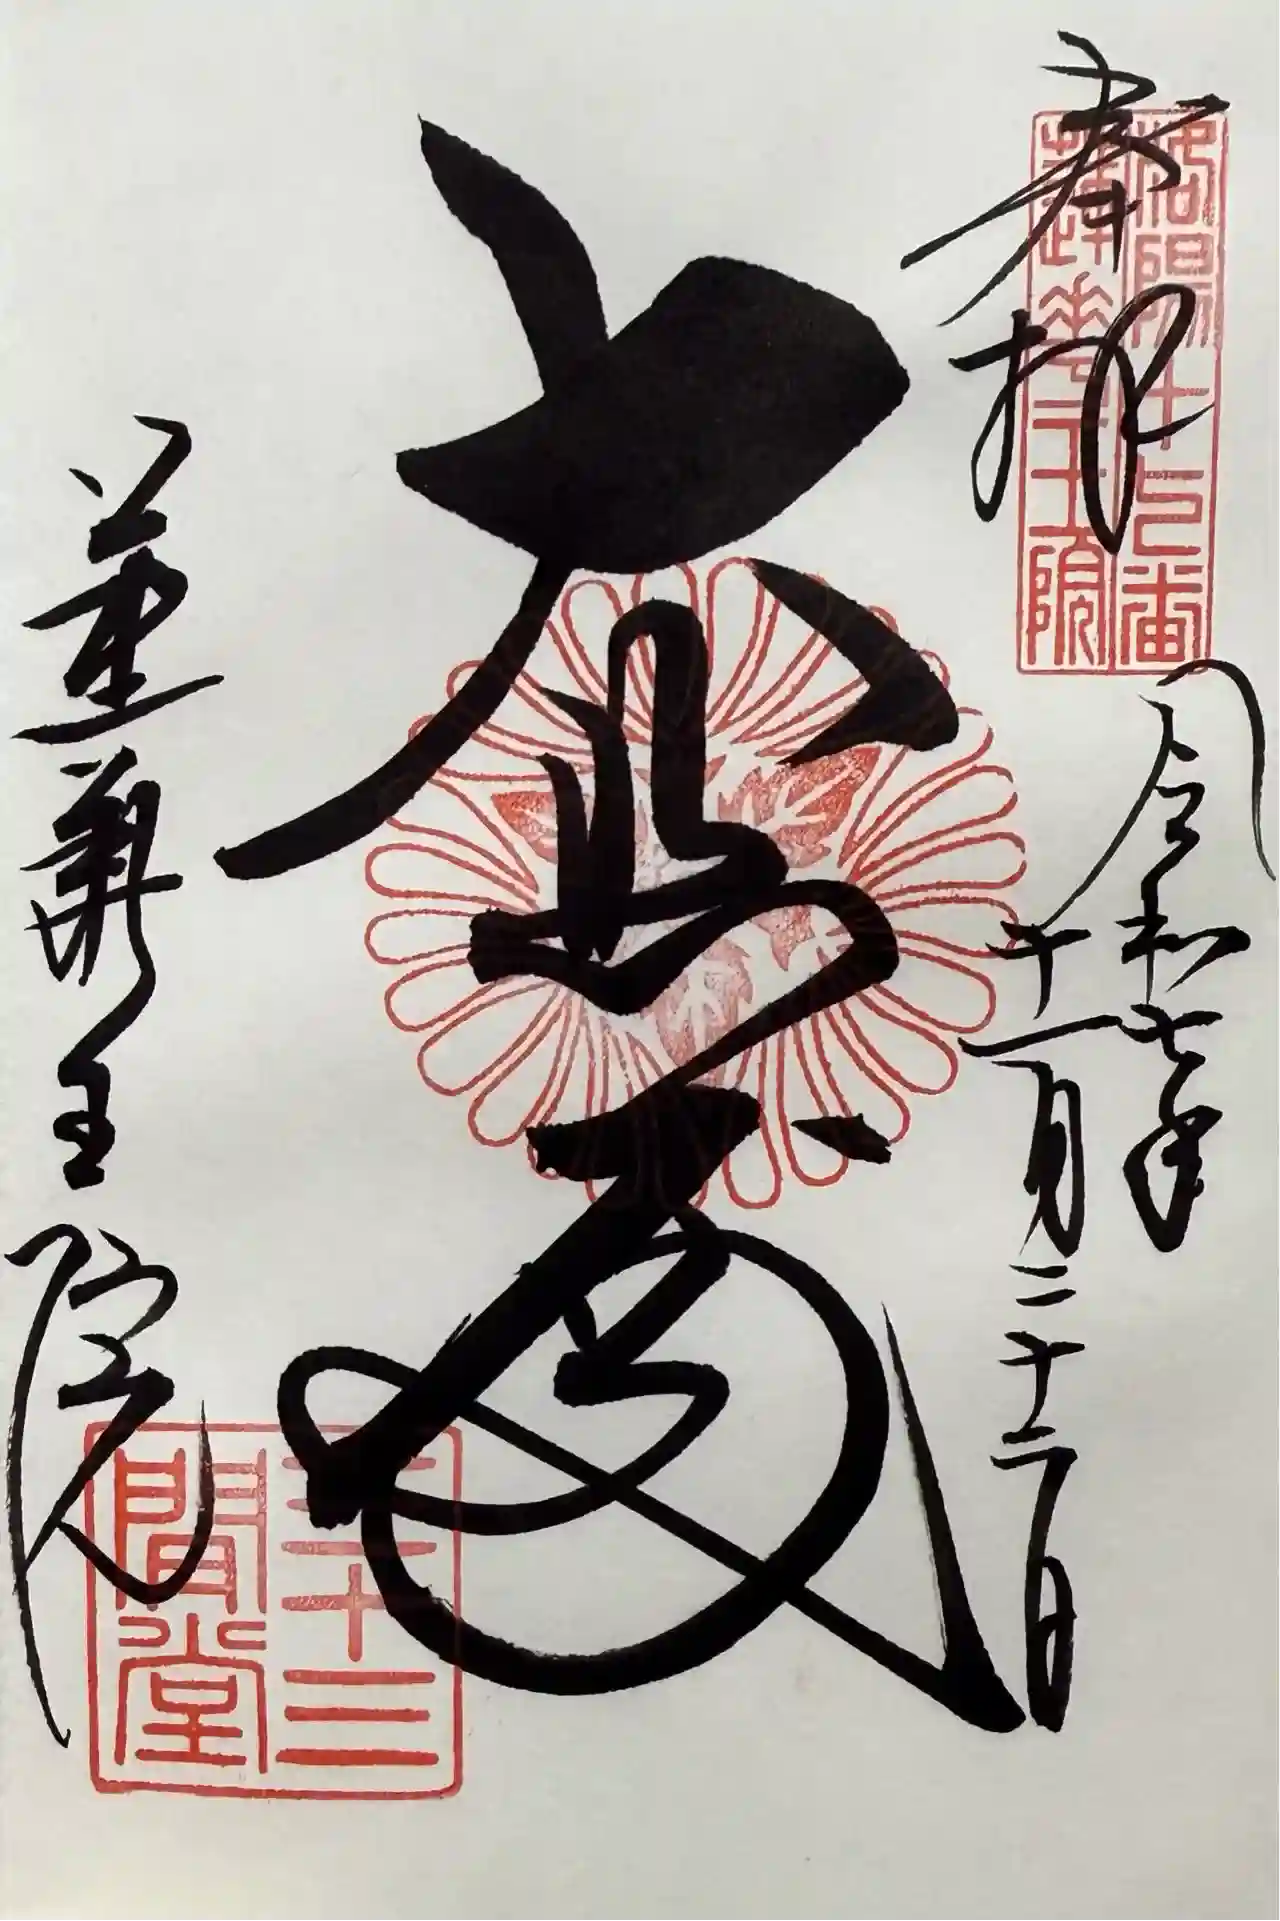 奉拝
洛陽十七番
蓮華王院
令和七年
十一月二十二日
大悲殿
蓮華王院
三十三
間堂